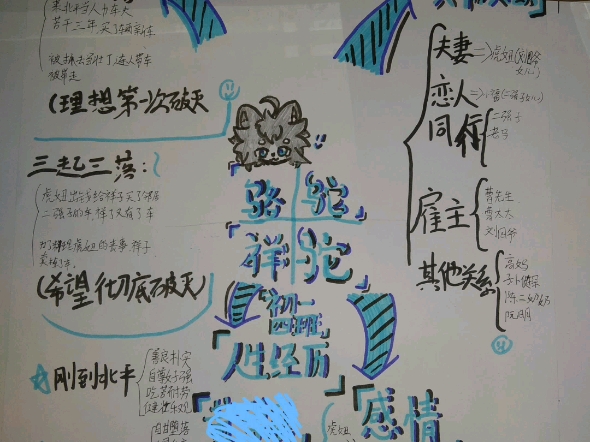 来北平当人力车夫
苦干三年,买了辆新车
(理想第一次破灭)
三起三落:
虎妞出钱给祥子买了邻居
二强子的车,祥子又有了车
为了办理虎妞的丧事 祥子
卖掉了车
(希望彻底破灭)
刚到北平
善良朴实
自尊好强
吃苦耐劳
自甘堕落
骆驼
祥驼
初一
四班
「人生经历
「感情
虎妞
夫妻=>虎妞(刘四爷
女儿)
恋人=>小福(二强子女儿)
同行
二强子
老马
雇主
曹先生
曹太太
刘四爷
其他关系
高妈
孙侦探
陈二奶奶
阮明